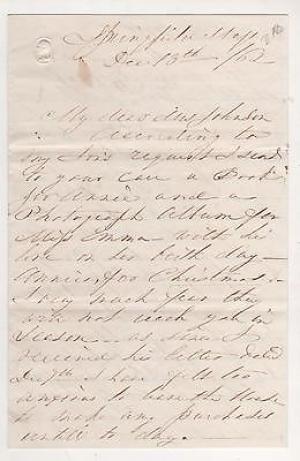 Springfield Mass
Dec 13th /62
My dear Mrs Johnson
According to
my Son's request I send
to your care a Book
for Annie and a
Photograph Album for
Miss Emma with his
love on her birth day -
Annies, for Christmas.
I very much fear they
will not reach you in
Season - as since I
received his letter dated
Dec 7th I have felt too
anxious to leave the House
to make any purchases
untill to day. -